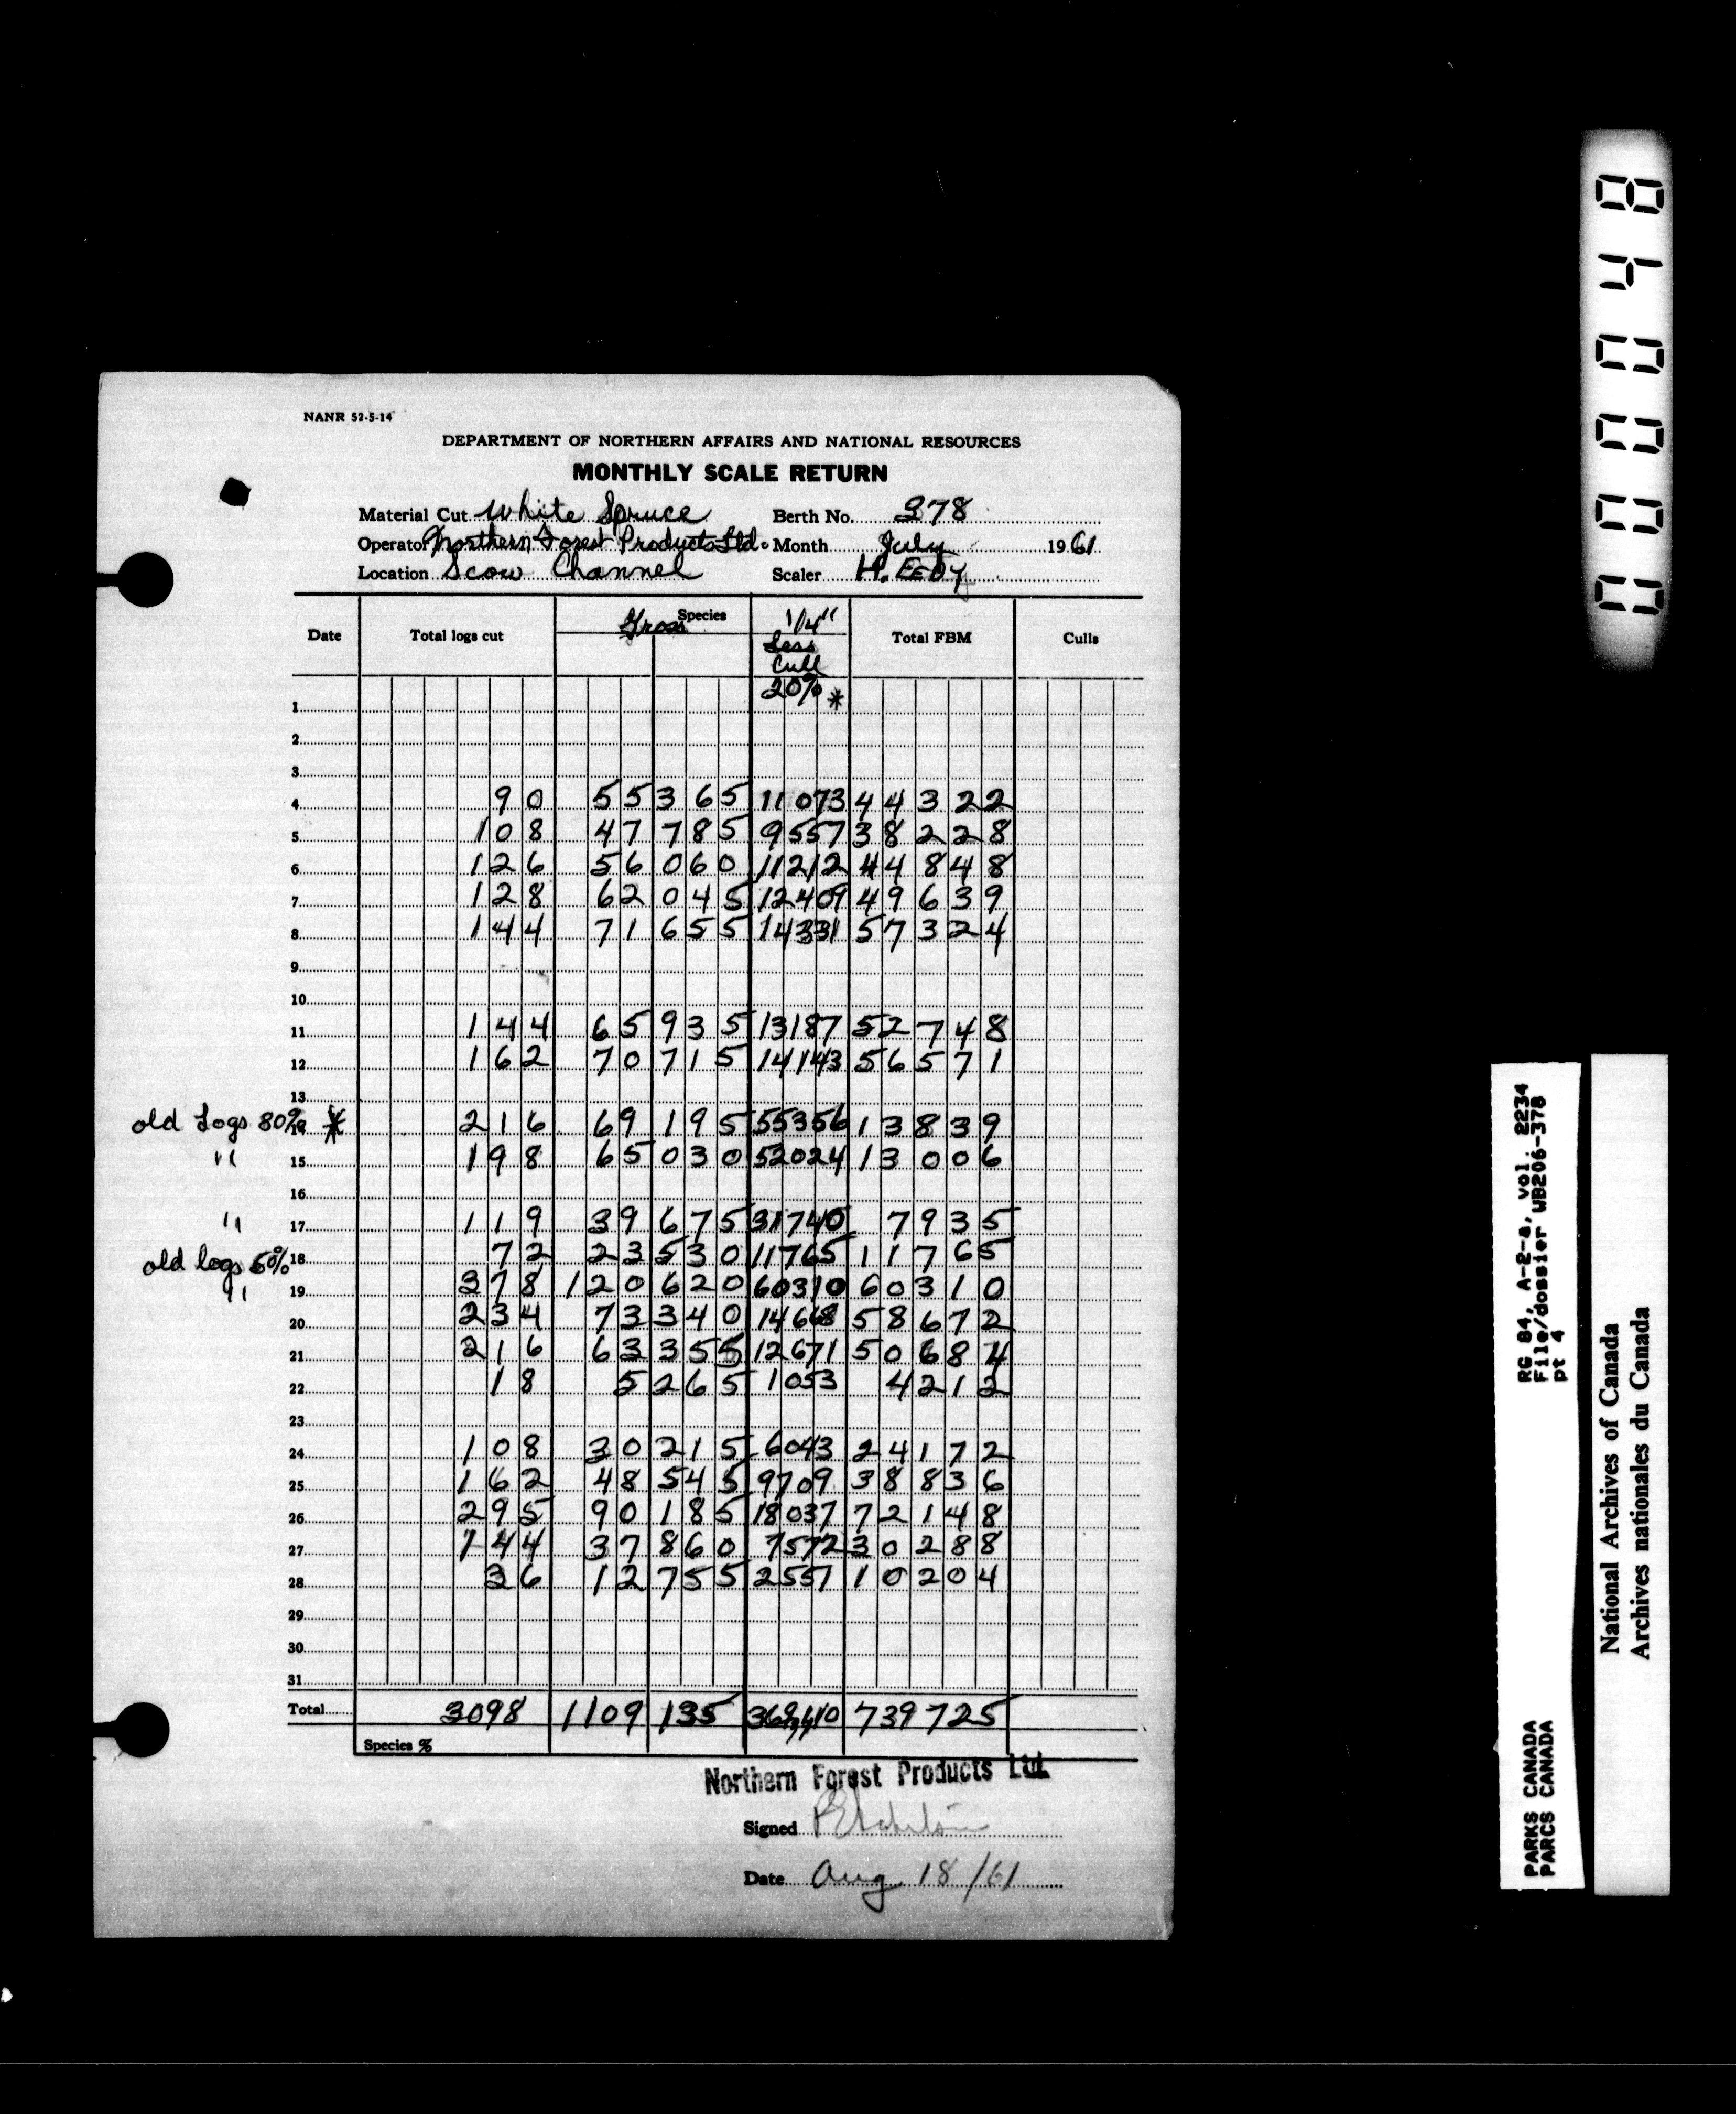 NANR 52-5-14
DEPARTMENT OF NORTHERN AFFAIRS AND NATIONAL RESOURCES
MONTHLY SCALE RETURN
Material Cut White Spruce Berth No. 378
Operator Northern Forest Products Ltd. Month July 1961
Location Scow Channel Scaler H. EEDY
Date Total logs cut Gross Species 1/4" Less Cull 20% * Total FBM Culls
1
2
3
4 90 55365 11073 44322
5 108 47785 9557 38228
6 126 56060 11212 44848
7 128 62045 12409 49639
8 144 71655 14331 57324
9
10
11 144 65935 13187 52748
12 162 70715 14143 56571
13
old Logs 80% * 216 69195 55356 13839
" 15 198 65030 52024 13006
16
" 17 119 39675 31740 7935
old logs 50% 18 72 23530 11765 11765
" 19 378 120620 60310 60310
20 234 73340 14668 58672
21 216 63355 12671 50684
22 18 5265 1053 4212
23
24 108 30215 6043 24172
25 162 48545 9709 38836
26 295 90185 18037 72148
27 144 37860 7572 30288
28 36 12755 2551 10204
29
30
31
Total 3098 1109135 369,410 739725
Species %
Northern Forest Products Ltd.
Signed
Date Aug 18/61
000048
RG 84, A-2-a, vol. 2234
File/dossier WB206-378
pt 4
PARKS CANADA
PARCS CANADA
National Archives of Canada
Archives nationales du Canada